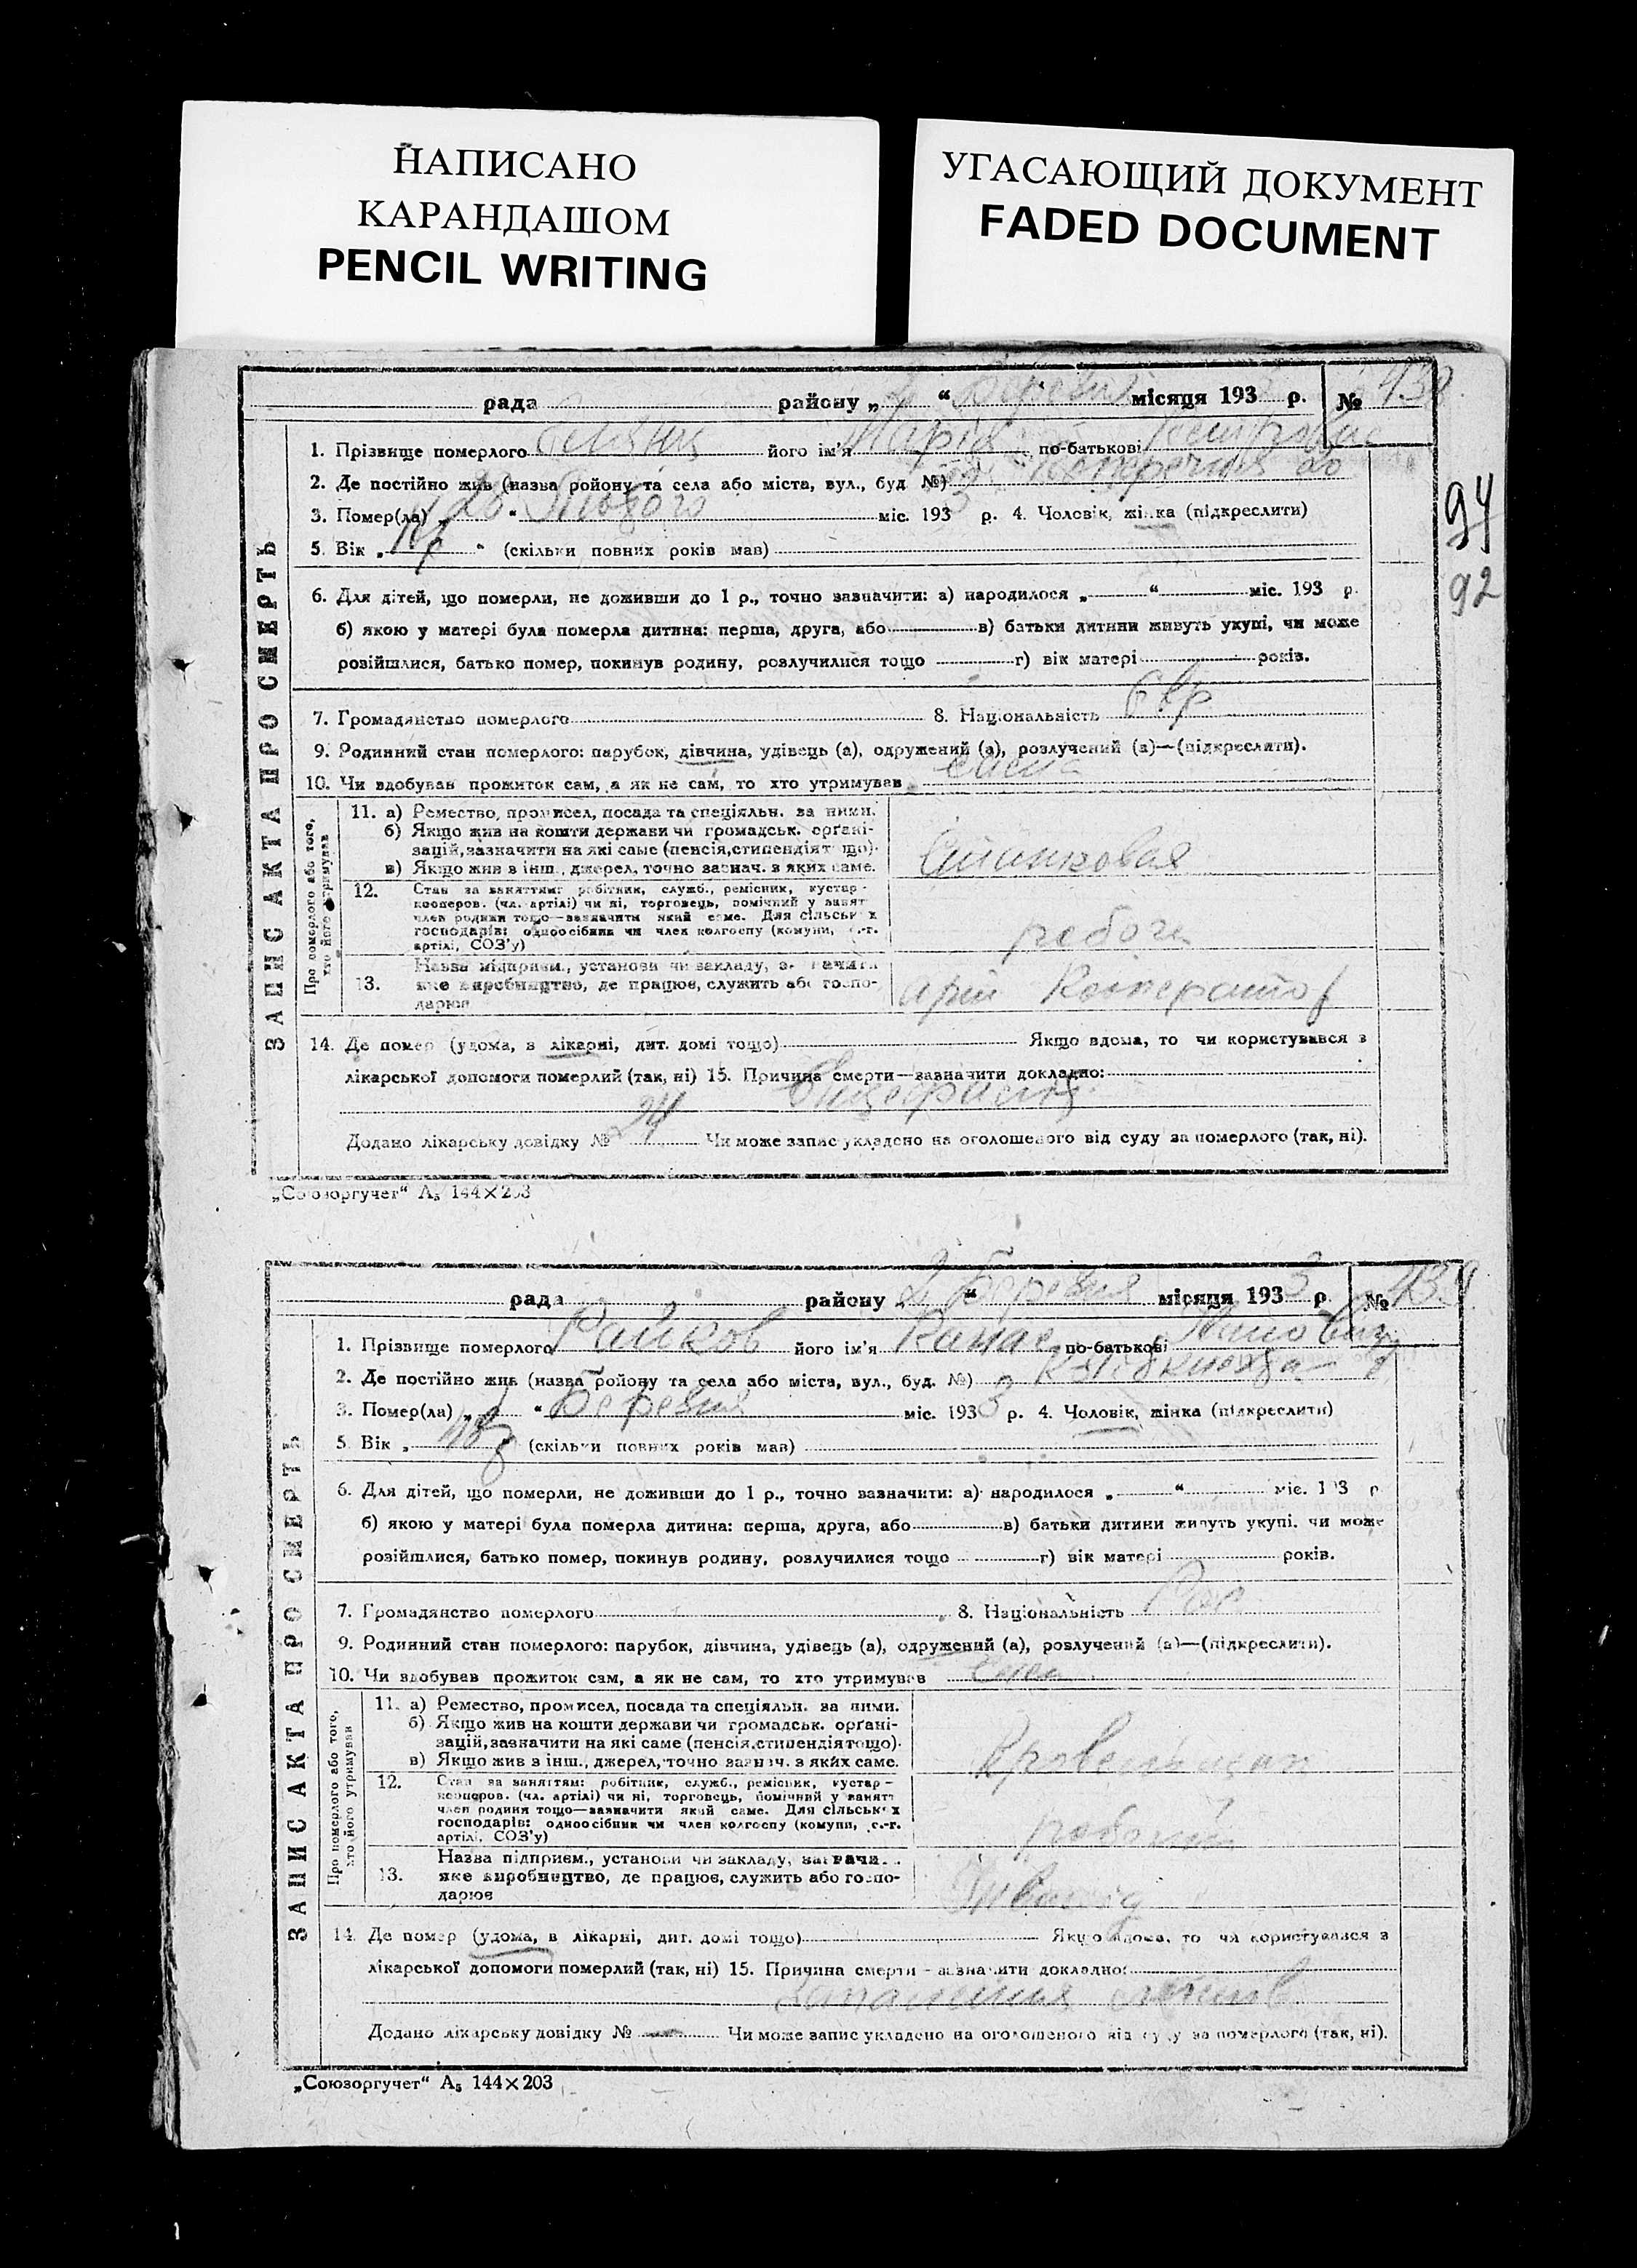 НАПИСАНО
КАРАНДАШОМ
PENCIL WRITING
УГАСАЮЩИЙ ДОКУМЕНТ
FADED DOCUMENT
рада району „2“ Березня місяця 1933 р. № 438
94
92
ЗАПИС АКТА ПРО СМЕРТЬ
1. Прізвище померлого його ім'я Марія по-батькові
2. Де постійно жив (назва ройону та села або міста, вул., буд №)
3. Помер(ла) „28“ Лютого міс. 1933 р. 4. Чоловік, жінка (підкреслити)
5. Вік „ “ (скільки повних років мав)
6. Для дітей, що померли, не доживши до 1 р., точно зазначити: а) народилося „ “ міс. 193 р.
б) якою у матері була померла дитина: перша, друга, або в) батьки дитини живуть укупі, чи може
розійшлися, батько помер, покинув родину, розлучилися тощо г) вік матері років.
7. Громадянство померлого 8. Національність Євр
9. Родинний стан померлого: парубок, дівчина, удівець (а), одружений (а), розлучений (а)—(підкреслити).
10. Чи вдобував прожиток сам, а як не сам, то хто утримував сама
Про померлого або того, хто його утримував
11. а) Ремество, промисел, посада та спеціяльн. за ними.
б) Якщо жив на кошти держави чи громадськ. орґані-
зацій, зазначити на які саме (пенсія, стипендія тощо).
в) Якщо жив в інш., джерел, точно зазнач. з яких саме.
12. Стан за заняттям: робітник, служб., ремісник, кустар-
кооперов. (чл. артілі) чи ні, торговець, помічний у занят
член родини тощо—зазначити який саме. Для сільських
господарів: одноосібник чи член колгоспу (комуни, с.-г.
артілі, СОЗ'у)
13. Назва підприєм., установи чи закладу, зазначити
яке виробництво, де працює, служить або госпо-
дарює
14. Де помер (удома, в лікарні, дит. домі тощо) Якщо вдома, то чи користувався з
лікарської допомоги померлий (так, ні) 15. Причина смерти—зазначити докладно:
Додано лікарську довідку № 24 Чи може запис укладено на оголошеного від суду за померлого (так, ні).
„Союзоргучет“ А₅ 144×203
рада району „2“ Березня місяця 1933 р. № 439
ЗАПИС АКТА ПРО СМЕРТЬ
1. Прізвище померлого Райков його ім'я по-батькові
2. Де постійно жив (назва ройону та села або міста, вул., буд. №)
3. Помер(ла) „1“ Березня міс. 1933 р. 4. Чоловік, жінка (підкреслити)
5. Вік „ (скільки повних років мав)
6. Для дітей, що померли, не доживши до 1 р., точно зазначити: а) народилося „ “ міс. 193 р
б) якою у матері була померла дитина: перша, друга, або в) батьки дитини живуть укупі. чи може
розійшлися, батько помер, покинув родину, розлучилися тощо г) вік матері років.
7. Громадянство померлого 8. Національність
9. Родинний стан померлого: парубок, дівчина, удівець (а), одружений (а), розлучений (а)—(підкреслити).
10. Чи вдобував прожиток сам, а як не сам, то хто утримував сам
Про померлого або того, хто його утримував
11. а) Ремество, промисел, посада та спеціяльн. за ними.
б) Якщо жив на кошти держави чи громадськ. орґані-
зацій, зазначити на які саме (пенсія, стипендія тощо).
в) Якщо жив в інш., джерел, точно зазнач. з яких саме.
12. Стан за заняттям: робітник, служб., ремісник, кустар-
кооперов. (чл. артілі) чи ні, торговець, помічний у занятт
член родини тощо—зазначити який саме. Для сільських
господарів: одноосібник чи член колгоспу (комуни, с.-г.
артілі, СОЗ'у)
13. Назва підприєм., установи чи закладу, зазначи
яке виробництво, де працює, служить або госпо-
дарює
Інвалід
14. Де помер (удома, в лікарні, дит. домі тощо) Якщо вдома, то чи користувався з
лікарської допомоги померлий (так, ні) 15. Причина смерти—зазначити докладно:
Запалення легенів
Додано лікарську довідку № — Чи може запис укладено на оголошеного від суду за померлого (так, ні).
„Союзоргучет“ А₅ 144×203